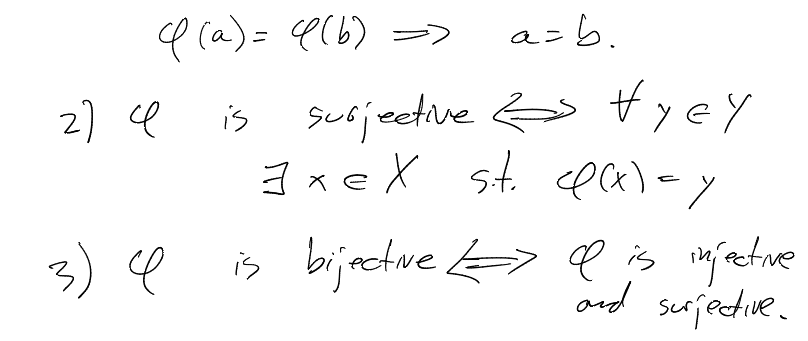 φ(a) = φ(b) ⟹ a = b.
2) φ is surjective ⟺ ∀ y ∈ Y
∃ x ∈ X s.t. φ(x) = y
3) φ is bijective ⟺ φ is injective
and surjective.